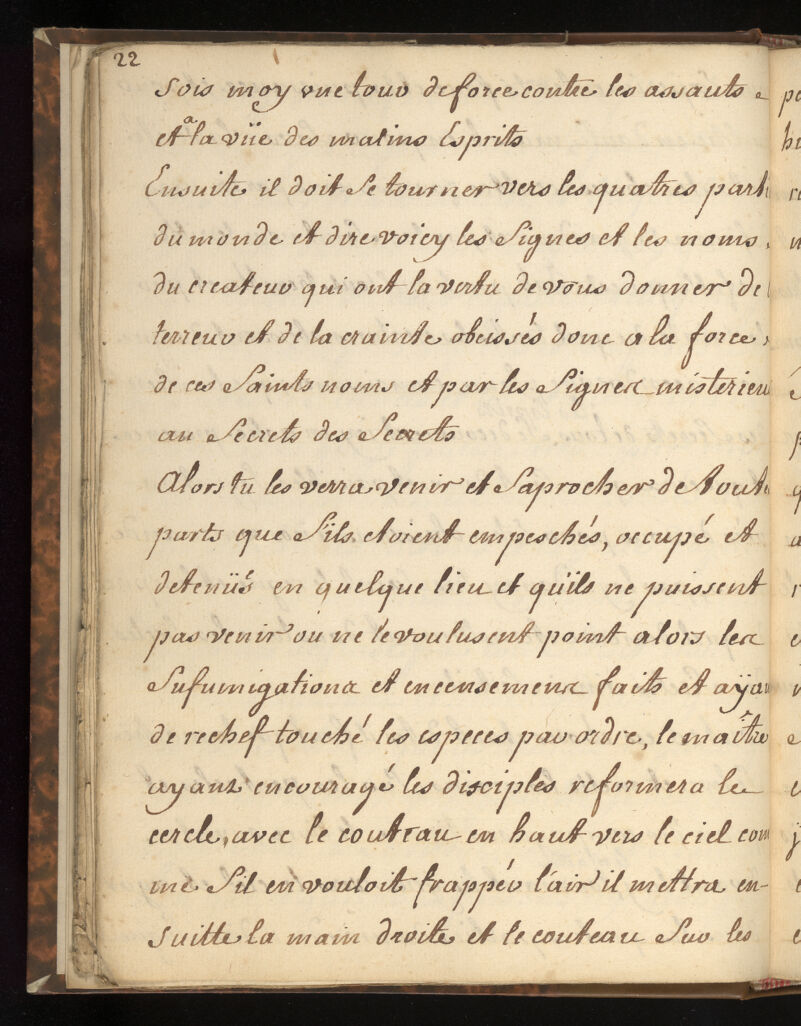 22
sois moy une tour de force contre les assauts
et a la vüe des malins Esprits
Ensuite il doit se tourner vers les quatres parti
du monde et dire voicy les Signes et les noms
du createur qui ont la vertu de vous donner de
terreur et de la crainte obeissés donc a la force
de ces Saints noms et par les Signes misterieu
au Secrets des Secrets
Alors tu les verra venir et Saprocher de toute
parts que Sils etoient empeschés, occupé et
detenüs en quelque lieu et quils ne puissent
pas venir ou ne le voulusent point alors les
Sufumigations et encensemens faits et aÿan
de rechef touché les especes par ordre, le maitre
ayant encouragé les disciples reformera le
cercle, avec le couteau en haut vers le ciel com
me Sil en vouloit frappér l'air il mettra en-
suitte la main droite et le couteau Sur les